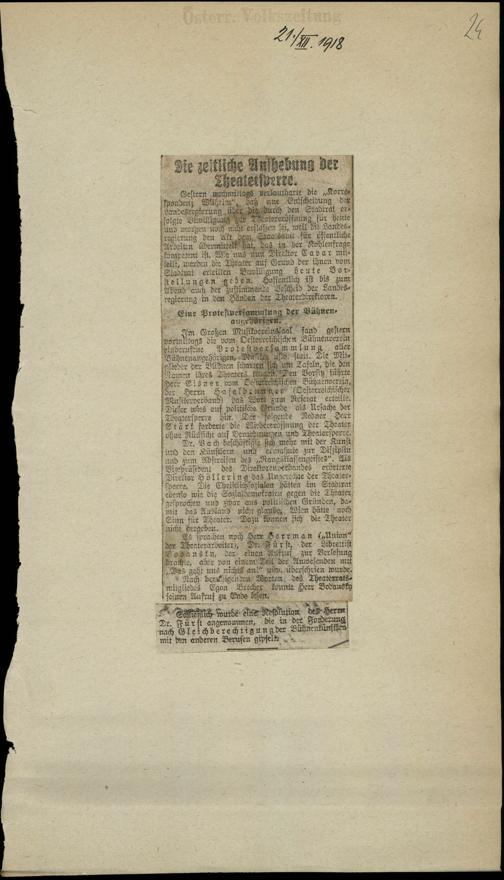 Österr. Volkszeitung
21./XII. 1918
24
Die zeitliche Aufhebung der
Theatersperre.
Gestern vormittags verlautbarte die „Korre-
spondenz Wilhelm“, daß eine Entscheidung der
Landesregierung über die durch den Stadtrat er-
folgte Bewilligung zur Theatereröffnung für heute
und morgen noch nicht erflossen sei, weil die Landes-
regierung den Akt dem Staatsamt für öffentliche
Arbeiten übermittelt hat, das in der Kohlenfrage
kompetent ist. Wie uns nun Direktor Tavar mit-
teilt, werden die Theater auf Grund der ihnen vom
Stadtrat erteilten Bewilligung heute Vor-
stellungen geben. Hoffentlich ist bis zum
Abend auch der zustimmende Bescheid der Landes-
regierung in den Händen der Theaterdirektoren.
Eine Protestversammlung der Bühnen-
angehörigen.
Im Großen Musikvereinssaal fand gestern
vormittags die vom Oesterreichischen Bühnenverein
einberufene Protestversammlung aller
Bühnenangehörigen, Musiker usw. statt. Die Mit-
glieder der Bühnen scharten sich um Tafeln, die den
Namen ihres Theaters trugen. Den Vorsitz führte
Herr Eisner vom Oesterreichischen Bühnenverein,
der Herrn Haselbrunner (Oesterreichischer
Musikerverband) das Wort zum Referat erteilte.
Dieser wies auf politische Gründe als Ursache der
Theatersperre hin. Der folgende Redner Herr
Stärk forderte die Wiedereröffnung der Theater
ohne Rücksicht auf Verordnungen und Theatersperre.
Dr. Bach beschäftigte sich mehr mit der Kunst
und den Künstlern und ermahnte zur Disziplin
und zum Abstreifen des „Rangsklassengeistes“. Als
Vizepräsident des Direktorenverbandes erörterte
Direktor Höllering das Ungerechte der Theater-
sperre. Die Christlichsozialen hätten im Stadtrat
ebenso wie die Sozialdemokraten gegen die Theater
gesprochen und zwar aus politischen Gründen, da-
mit das Ausland nicht glaube, Wien hätte noch
Sinn für Theater. Dazu können sich die Theater
nicht hergeben.
Es sprachen noch Herr Herrman („Union“
der Theaterarbeiter), Dr. Fürst, der Librettist
Bodansky, der einen Aufruf zur Verlesung
brachte, aber von einem Teil der Anwesenden mit
„Was geht uns nichts an!“ usw. überschrien wurde.
Nach beruhigenden Worten des Theaterrats-
mitgliedes Egon Brecher konnte Herr Bodansky
seinen Aufruf zu Ende lesen.
Schließlich wurde eine Resolution des Herrn
Dr. Fürst angenommen, die in der Forderung
nach Gleichberechtigung der Bühnenkünstler
mit den anderen Berufen gipfelt.